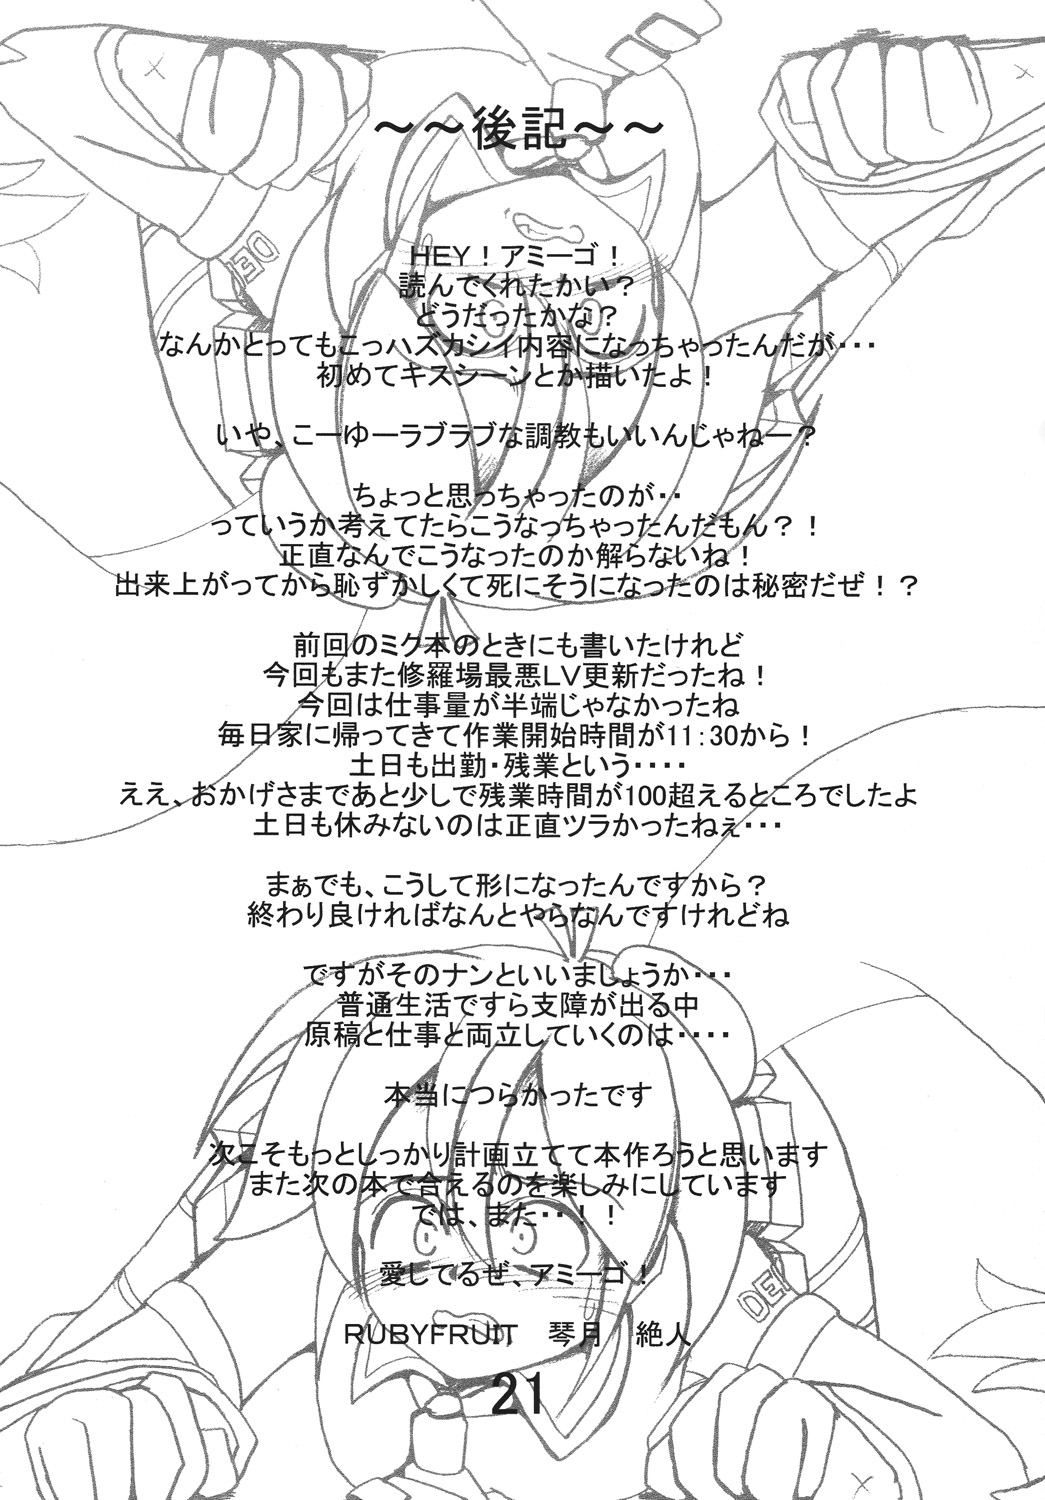 ～～後記～～
HEY！アミーゴ！
読んでくれたかい？
どうだったかな？
なんかとってもこっハズカシイ内容になっちゃったんだが・・・
初めてキスシーンとか描いたよ！
いや、こーゆーラブラブな調教もいいんじゃねー？
ちょっと思っちゃったのが・・
っていうか考えてたらこうなっちゃったんだもん？！
正直なんでこうなったのか解らないね！
出来上がってから恥ずかしくて死にそうになったのは秘密だぜ！？
前回のミク本のときにも書いたけれど
今回もまた修羅場最悪LV更新だったね！
今回は仕事量が半端じゃなかったね
毎日家に帰ってきて作業開始時間が11：30から！
土日も出勤・残業という・・・・
ええ、おかげさまであと少しで残業時間が100超えるところでしたよ
土日も休みないのは正直ツラかったねぇ・・・
まぁでも、こうして形になったんですから？
終わり良ければなんとやらなんですけれどね
ですがそのナンといいましょうか・・・
普通生活ですら支障が出る中
原稿と仕事と両立していくのは・・・・
本当につらかったです
次こそもっとしっかり計画立てて本作ろうと思います
また次の本で合えるのを楽しみにしています
では、また・・！！
愛してるぜ、アミーゴ！
RUBYFRUIT　琴月　絶人
21